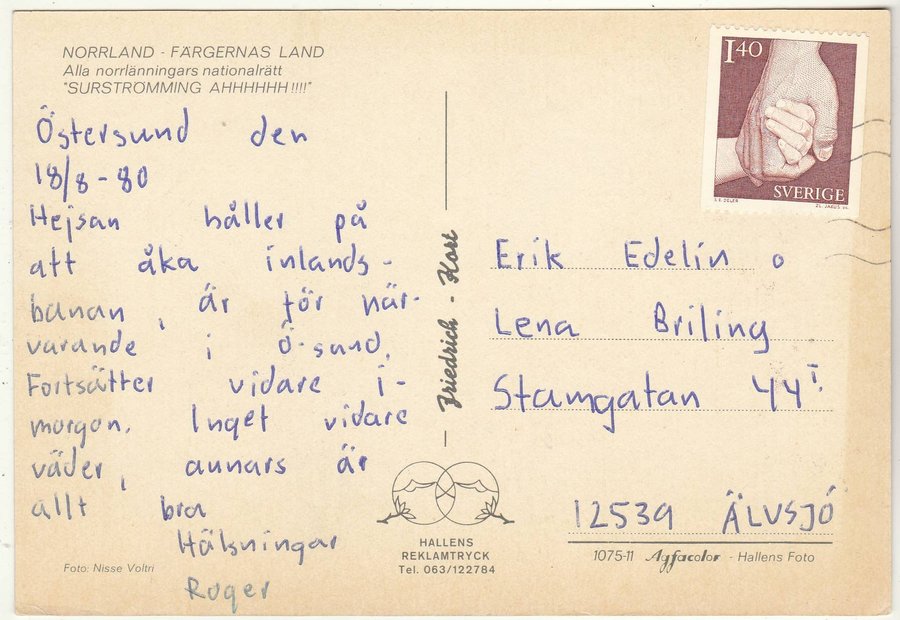 NORRLAND - FÄRGERNAS LAND
Alla norrlänningars nationalrätt
"SURSTRÖMMING AHHHHHH!!!!"
Östersund den
18/8-80
Hejsan håller på
att åka inlands-
banan, är för när-
varande i Ö-sund.
Fortsätter vidare i-
morgon. Inget vidare
väder, annars är
allt bra
Hälsningar
Roger
Foto: Nisse Voltri
Friedrich - Kort
HALLENS
REKLAMTRYCK
Tel. 063/122784
1.40
SVERIGE
Erik Edelin o
Lena Briling
Stamgatan 44 I.
12539 ÄLVSJÖ
1075-11 Agfacolor - Hallens Foto